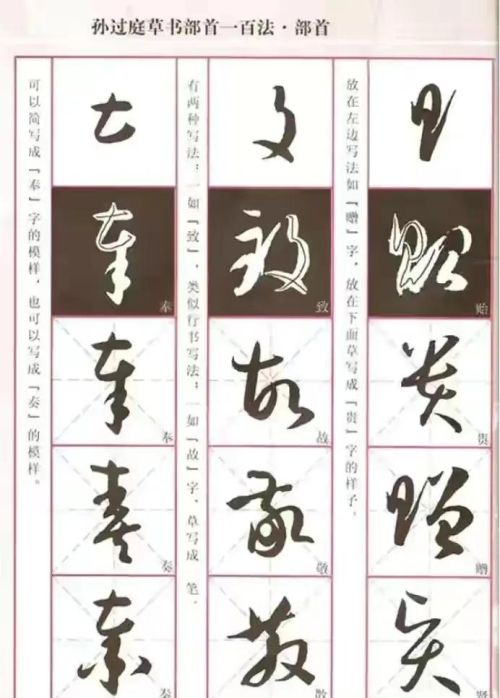 孙过庭草书部首一百法·部首
贻
贵
赠
贤
放在左边写法如「赠」字，放在下面草写成「贵」字的样子。
攵
致
故
敬
散
有两种写法：一如「致」，类似行书写法；一如「故」字，草写成 笔。
奉
奉
奏
可以简写成「奉」字的模样，也可以写成「奏」的模样。